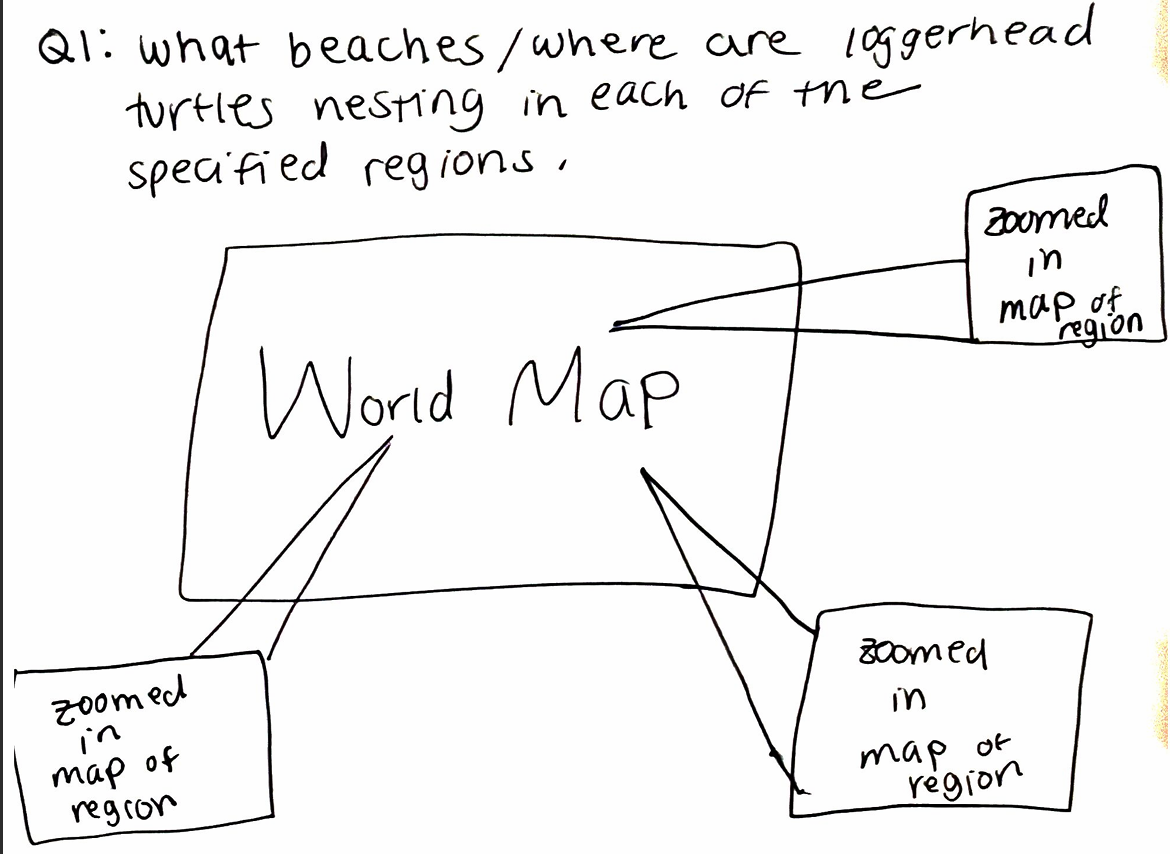 Q1: what beaches/where are loggerhead
turtles nesting in each of the
specified regions.
zoomed
in
map of
region
World Map
zoomed
in
map of
region
zoomed
in
map of
region